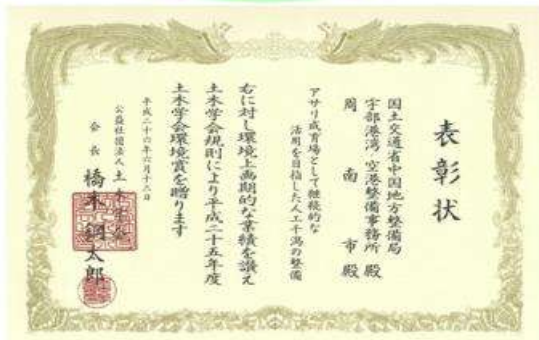 表彰状
国土交通省中国地方整備局
宇部港湾・空港整備事務所 殿
周南市 殿
アサリ成育場として継続的な
活用を目指した人工干潟の整備
右に対し環境上画期的な業績を讃え
土木学会規則により平成二十五年度
土木学会環境賞を贈ります
平成二十六年六月十三日
公益社団法人 土木学会
会長 橋本鋼太郎